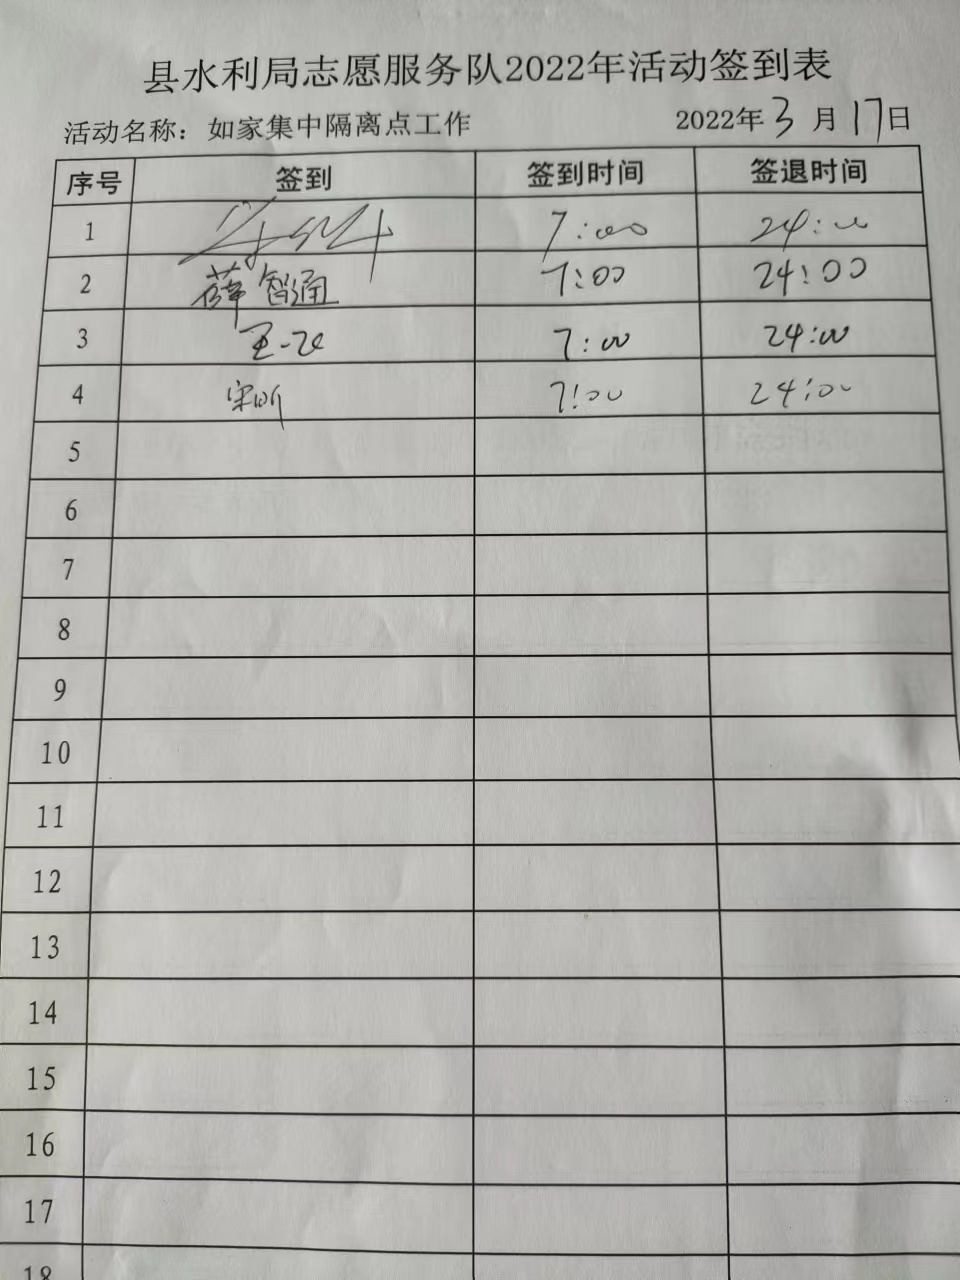 县水利局志愿服务队2022年活动签到表
活动名称：如家集中隔离点工作 2022年3月17日
序号 签到 签到时间 签退时间
1 7:00 24:00
2 薛智通 7:00 24:00
3 7:00 24:00
4 宋昕 7:00 24:00
5
6
7
8
9
10
11
12
13
14
15
16
17
18